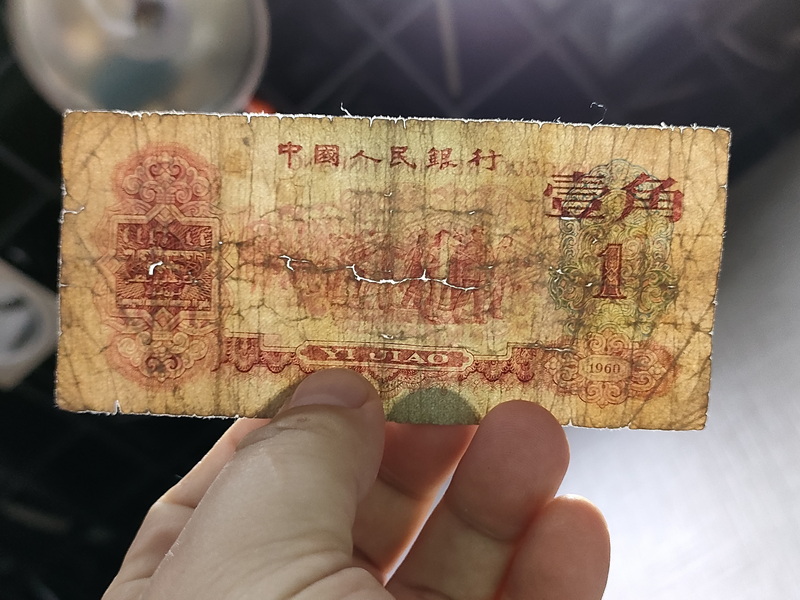 中國人民銀行
壹角
1
YI JIAO
1960